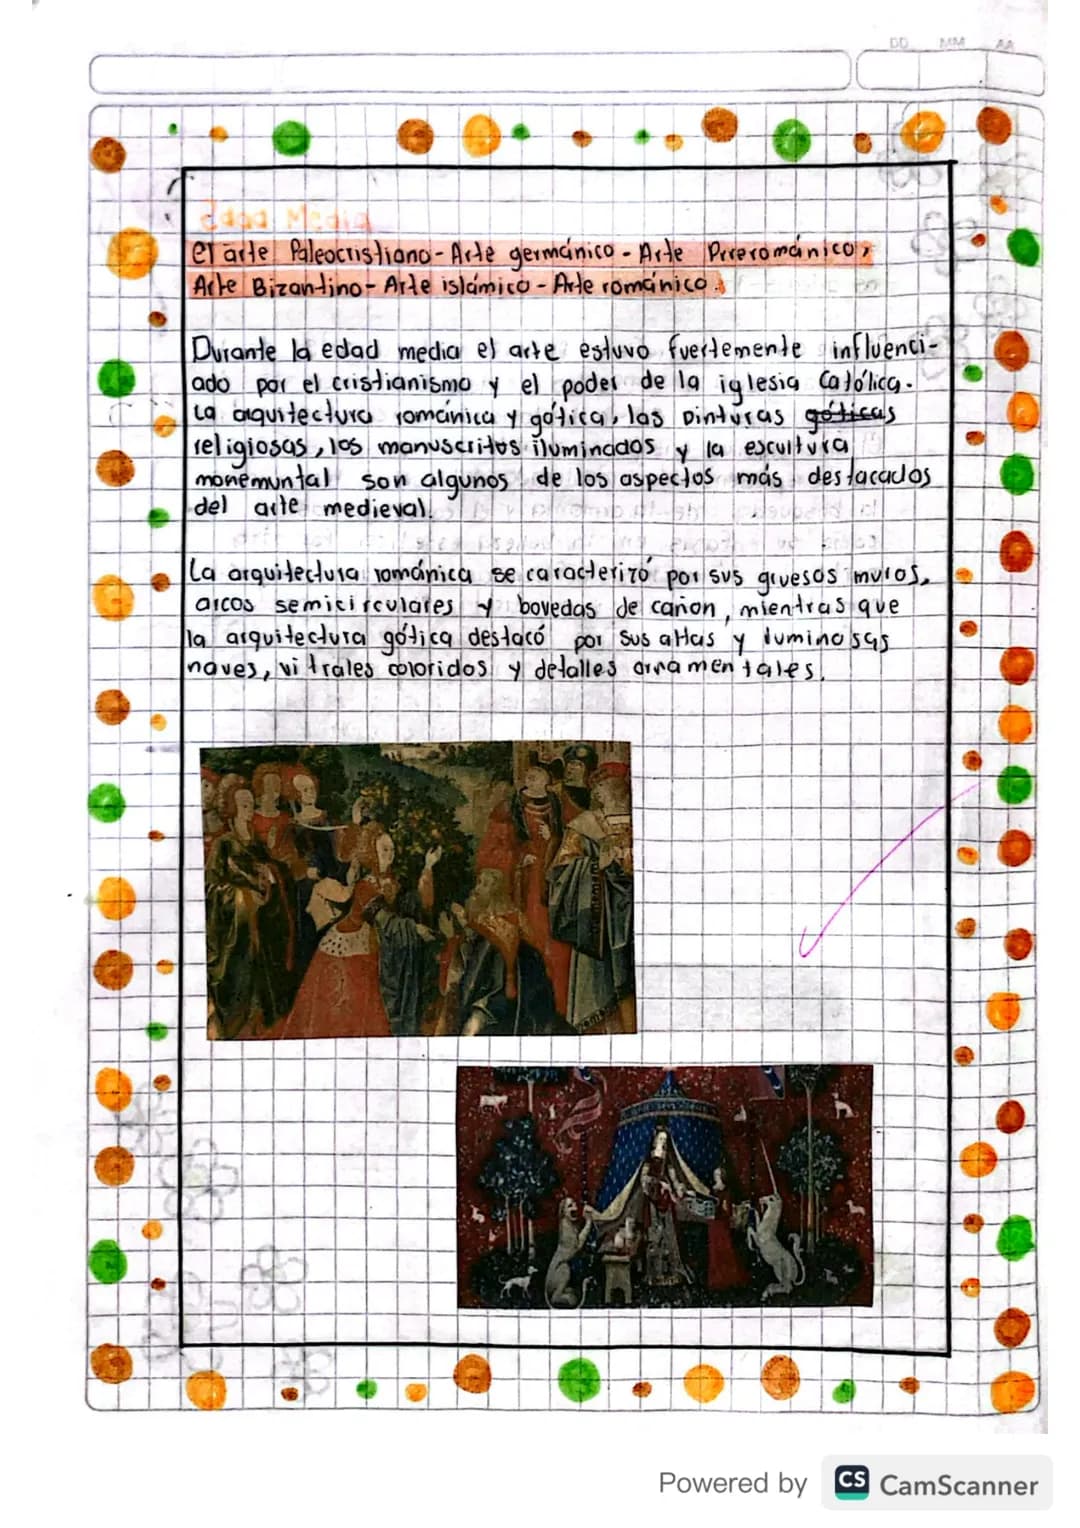 DD MM AA
Edad Media
El arte Paleocristiano - Arte germánico - Arte Prerománico,
Arte Bizantino - Arte islámico - Arte románico.
Durante la edad media el arte estuvo fuertemente influenci-
ado por el cristianismo y el poder de la iglesia Católica.
La arquitectura románica y gótica, las pinturas góticas
religiosas, los manuscritos iluminados y la escultura
monemuntal son algunos de los aspectos más destacados
del arte medieval.
La arquitectura románica se caracterizó por sus gruesos muros,
arcos semicirculares y bovedas de cañon, mientras que
la arquitectura gótica destacó por sus altas y luminosas
naves, vitrales coloridos y detalles ornamentales.
Powered by CS CamScanner